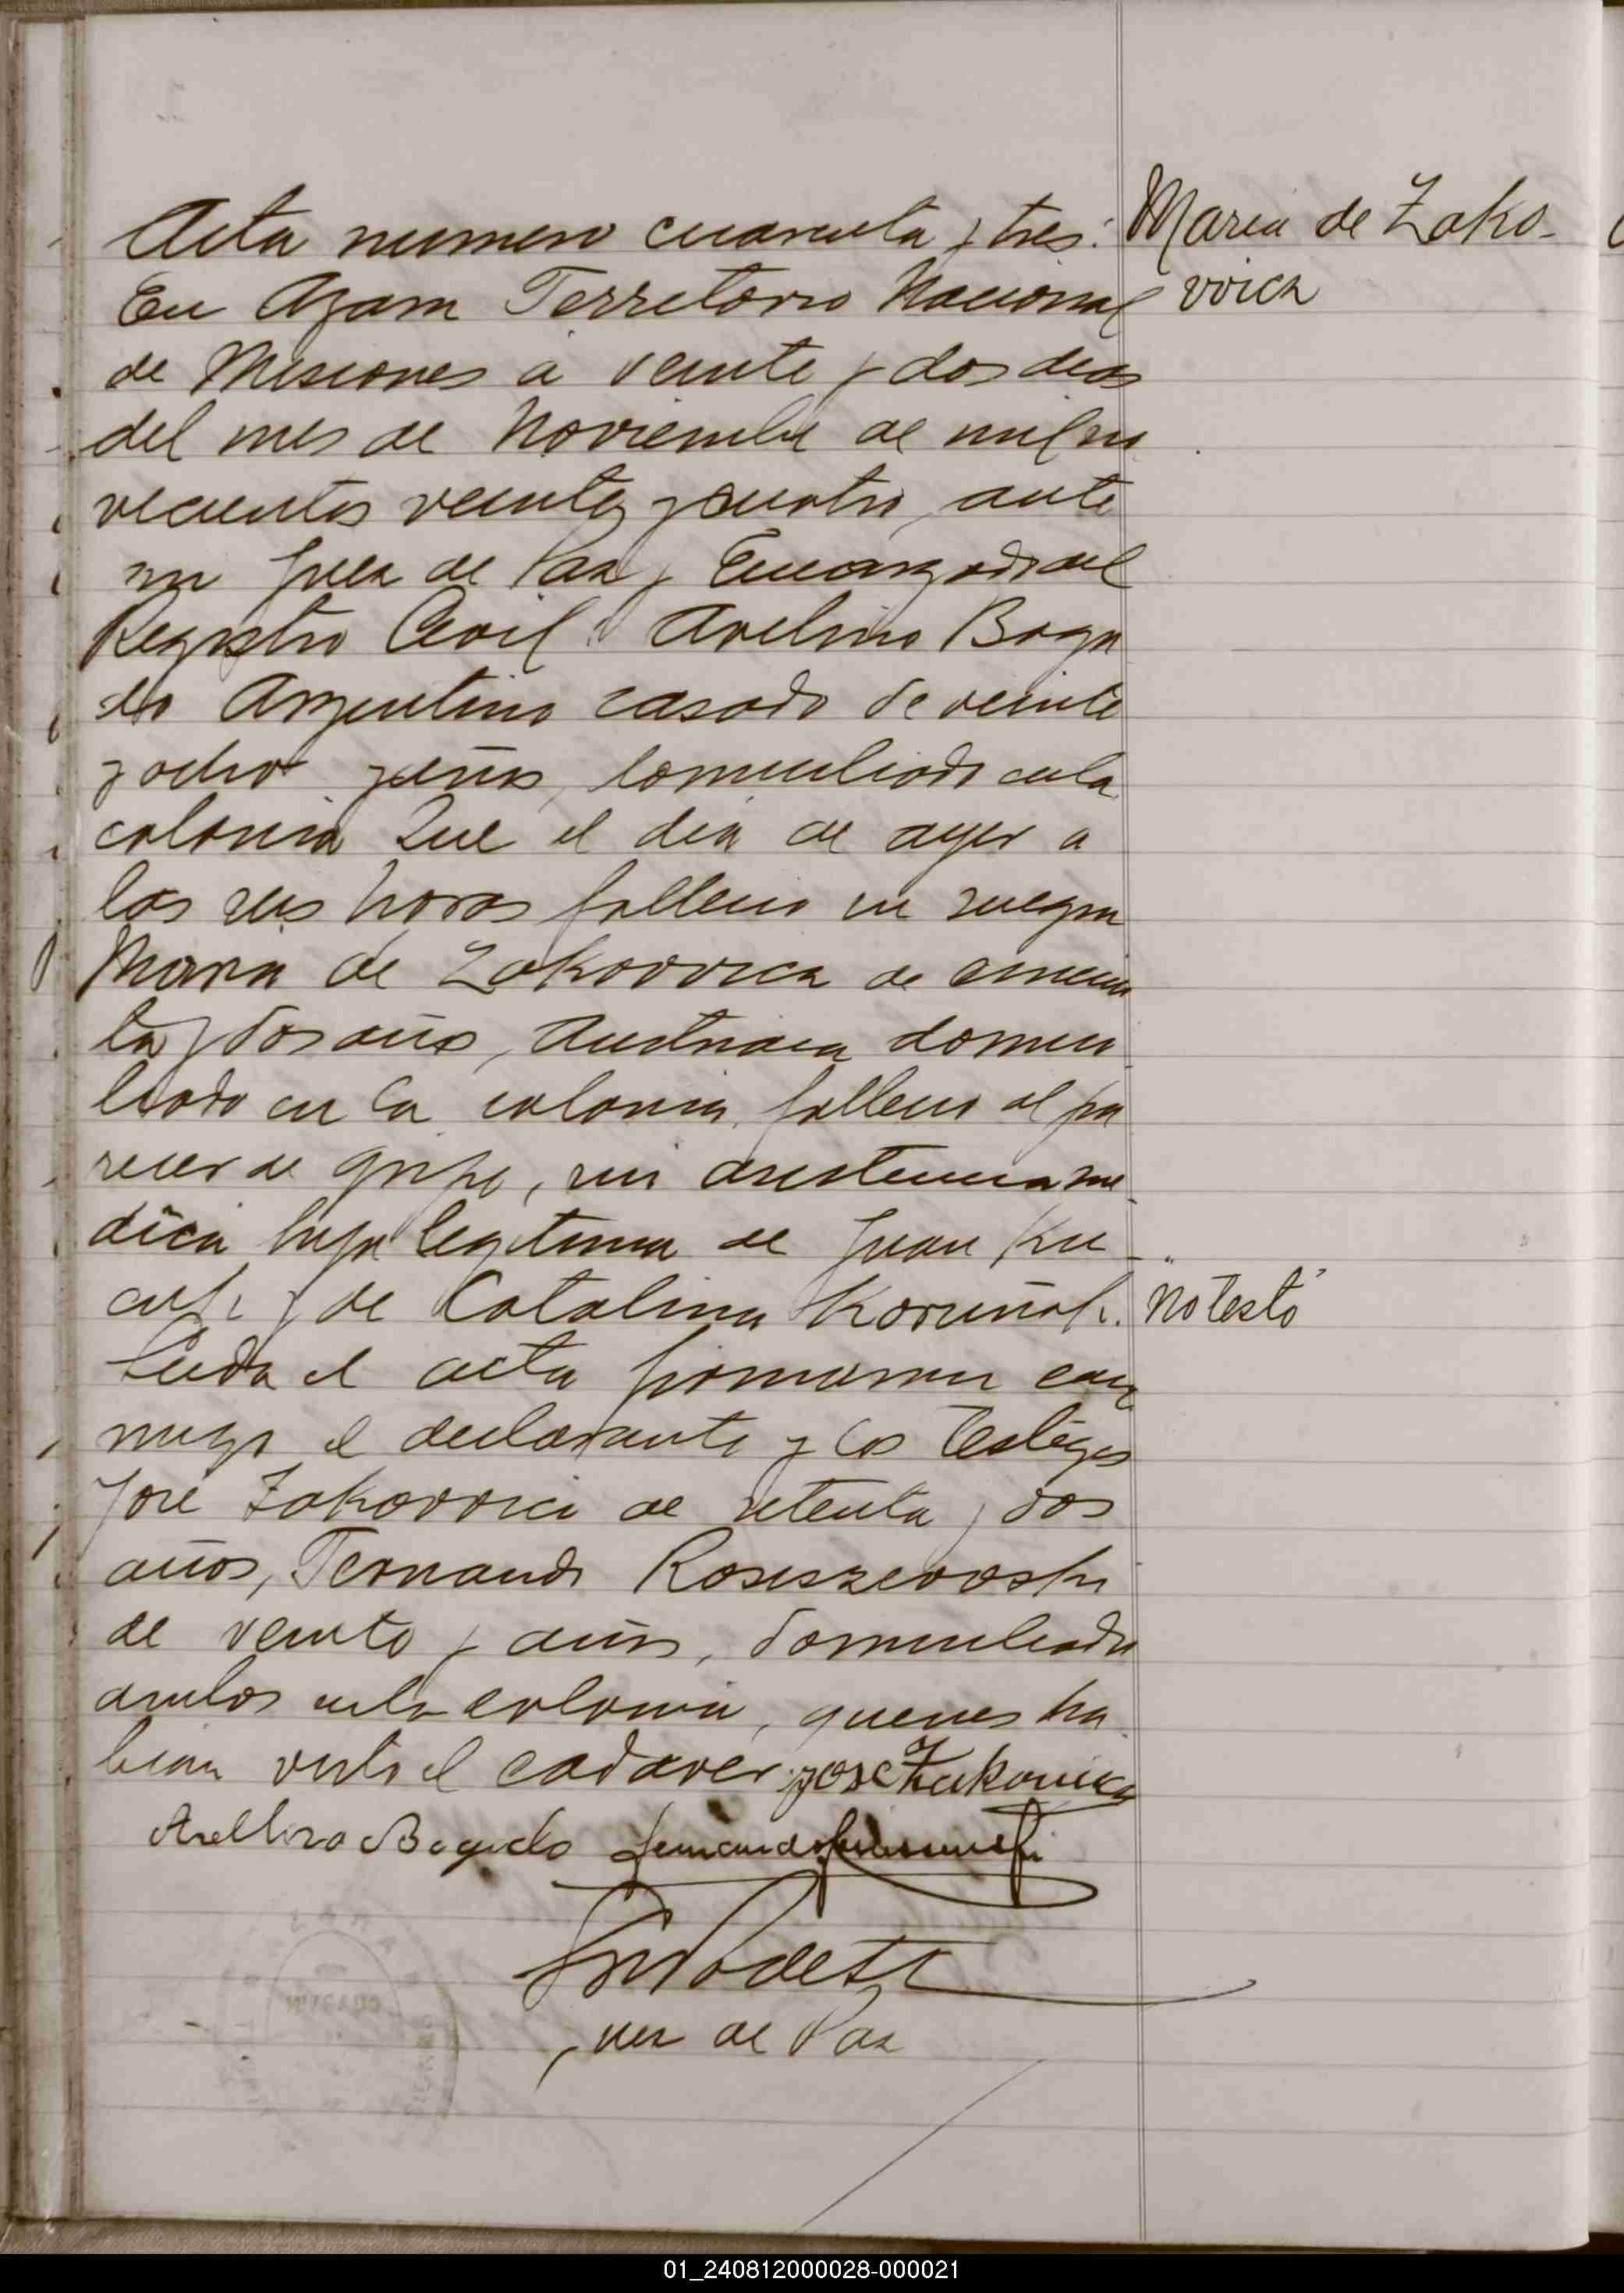 Acta numero cuarenta y tres:
Maria de Zako-
vvicz
En Azara Territorio Nacional
de Misiones a veinte y dos dias
del mes de Noviembre de mil no
vecientos veinte y cuatro, ante
mi Juez de Paz y Encargado del
Registro Civil Avelino Boga
do Argentino casado de veinte
y ocho años, domiciliado en la
colonia Que el dia de ayer a
las seis horas fallecio su suegra
Maria de Zakovvicz de cincuen
ta y dos años, Austriaca domici
liada en la colonia, fallecio al pa
recer de gripe, sin asistencia me
dica hija legitima de Juan Ku
y de Catalina
No testó
Leida el acta firmaron con
migo el declarante y los testigos
José Zakovvicz de setenta y dos
años, Fernando
de veinte y años, domiciliados
ambos en la colonia, quienes ha
bian visto el cadaver Jose Zukowicz
Avellino Bogado Fernando
Juez de Paz
01_240812000028-000021